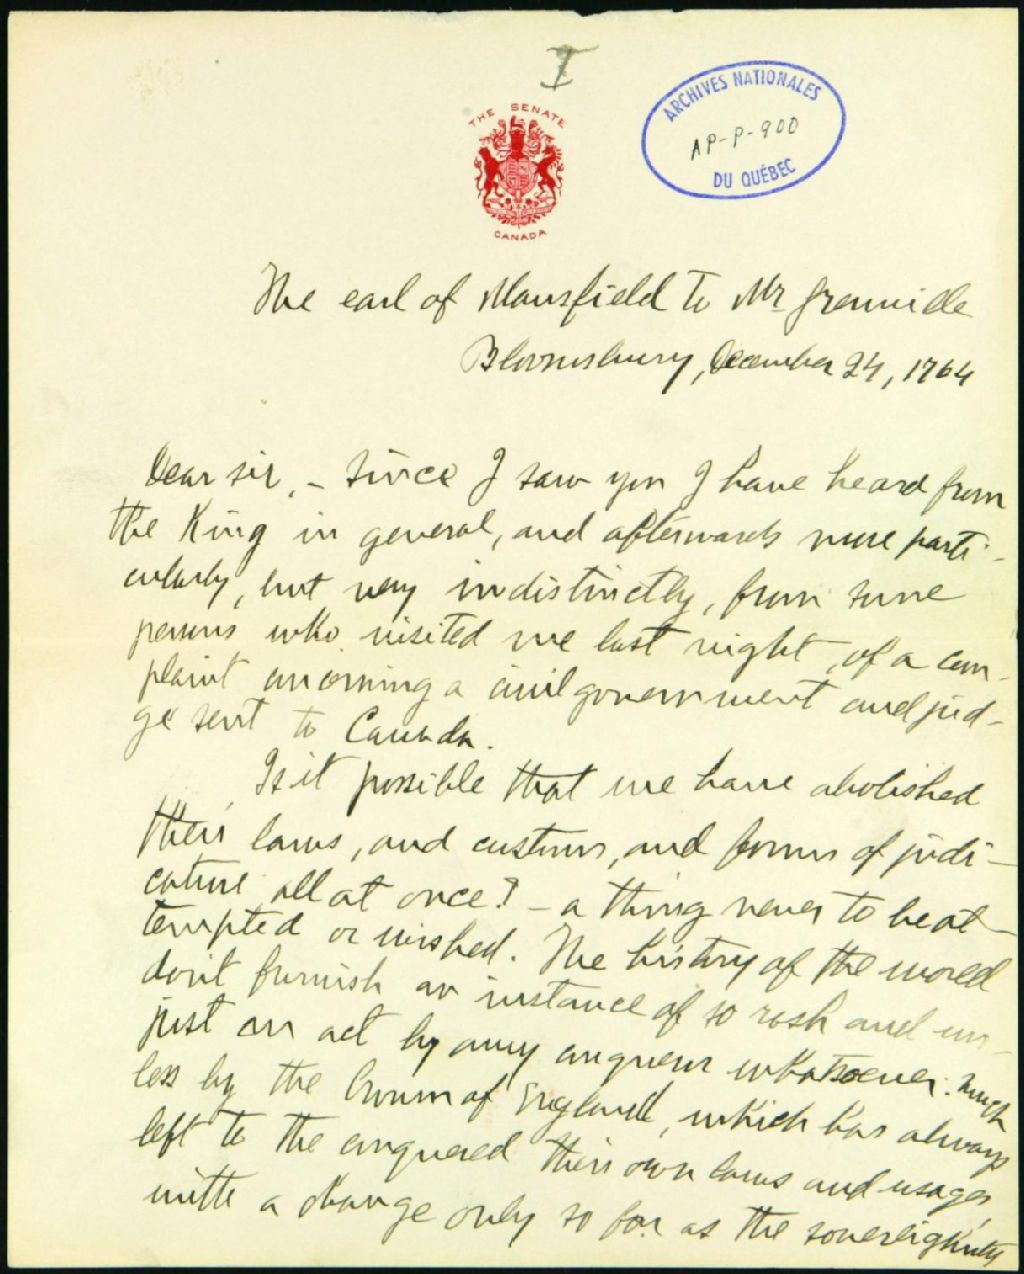 I
THE SENATE
CANADA
ARCHIVES NATIONALES
AP-P-900
DU QUÉBEC
The earl of Mansfield to Mr Grenville
Bloomsbury, December 24, 1764
Dear sir, – since I saw you I have heard from
the King in general, and afterwards more parti-
cularly, but very indistinctly, from some
persons who visited me last night, of a com-
plaint concerning a civil government and jud-
ge sent to Canada.
Is it possible that we have abolished
their laws, and customs, and forms of judi-
cature all at once? – a thing never to be at-
tempted or wished. The history of the world
don't furnish an instance of so rash and un-
just an act by any conqueror whatsoever. much
less by the Crown of England, which has always
left to the conquered their own laws and usages,
with a change only so far as the sovereignty